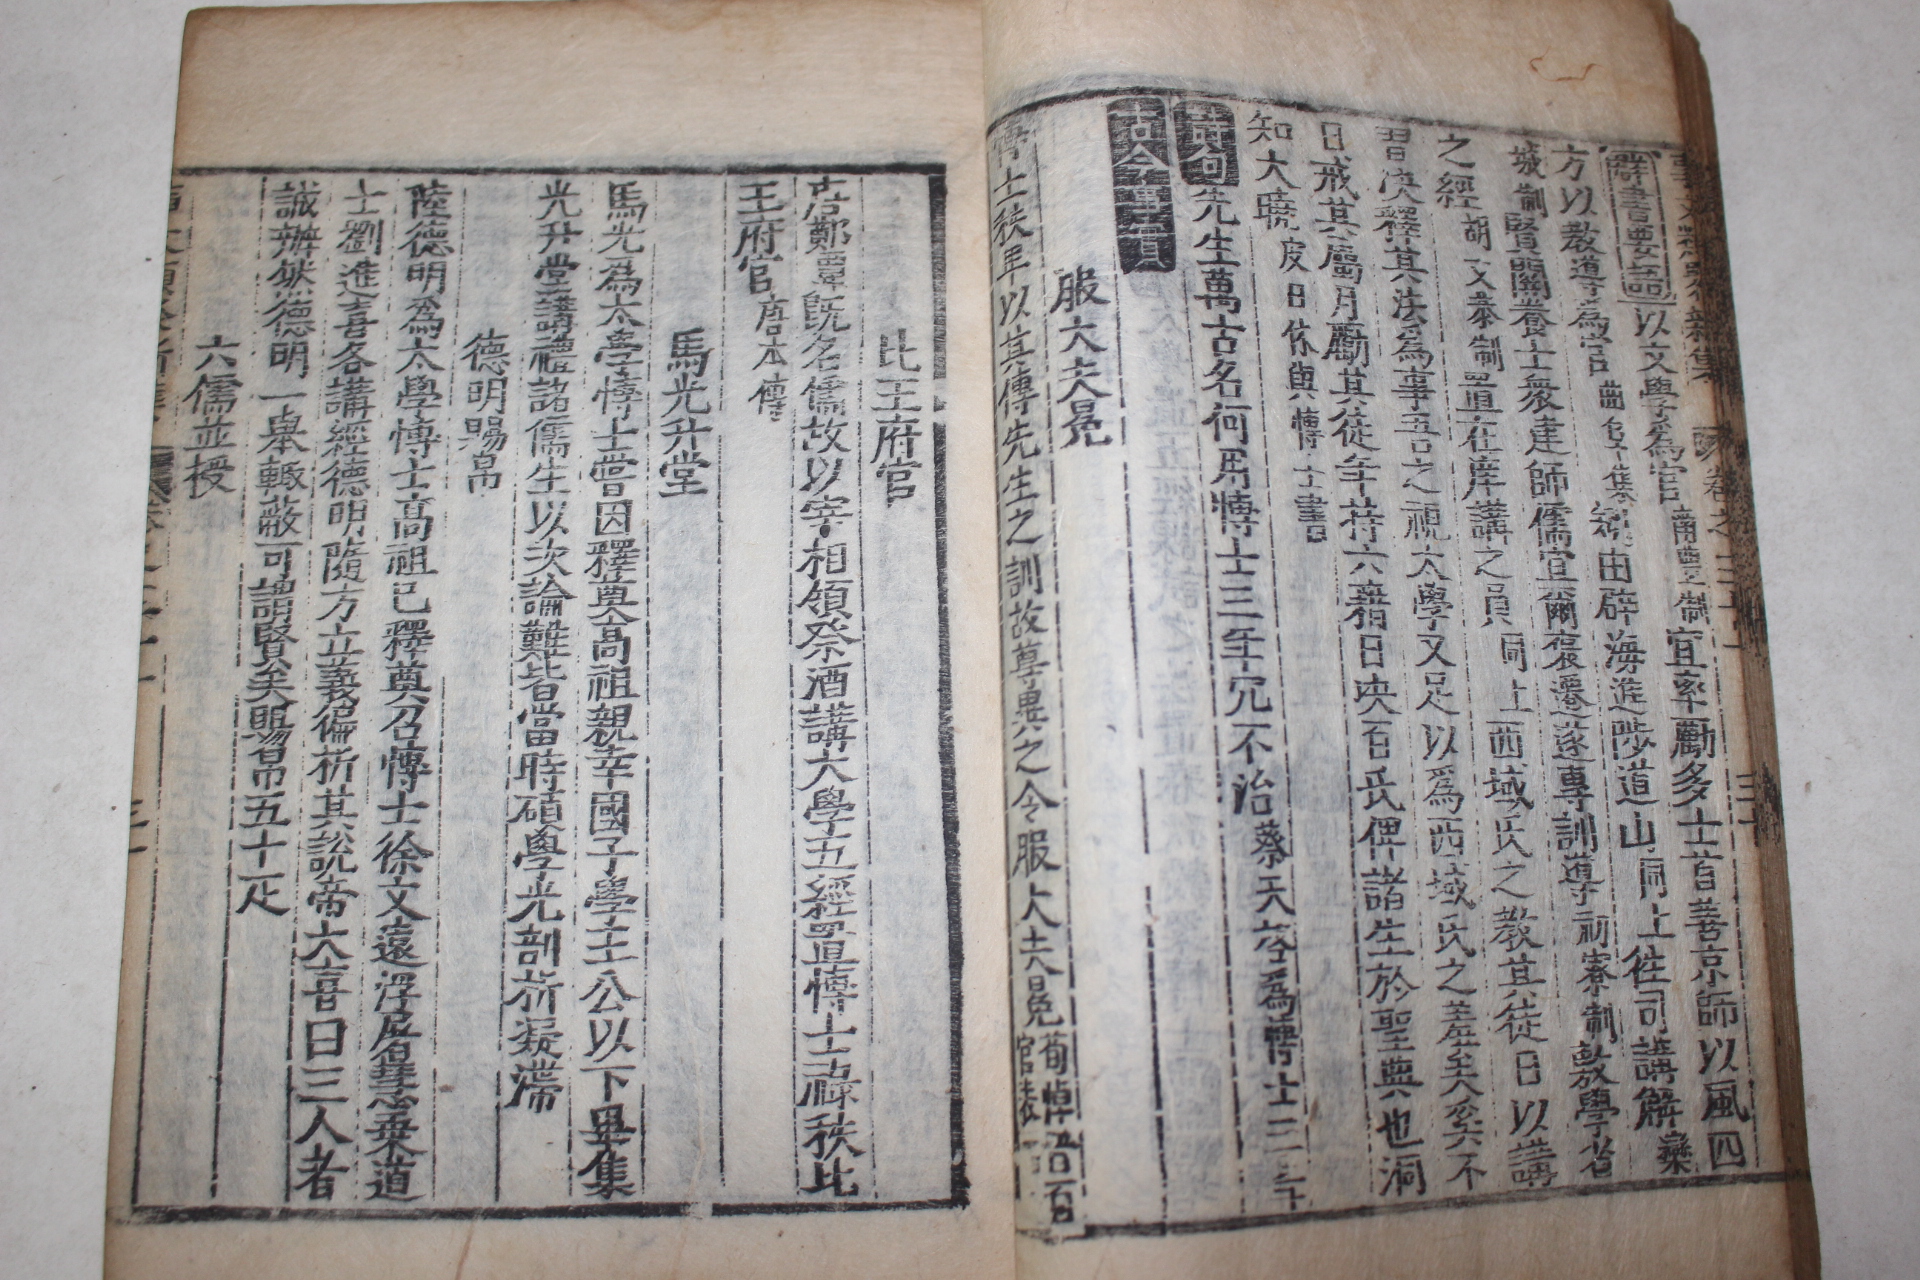 羣書要語 以文學爲官 南豐制 宜率勵多士首善京師以風四
方以教導爲官 曲阜集 䂓由辟海進陟道山 同上 徃司講解 欒
城制 賢關養士衆建師儒宜爾褎遷遂專訓導 初寮制 敩學省
之經 胡文恭制 置在庠講之員 同上 西域氏之教其徒日以講
習决釋其法爲事吾之視太學又足以爲西域氏之羞矣奚不
日戒其屬月勵其徒年持六藉日決百氏俾諸生於聖典也洞
知大曉 皮日休與博士書
詩句 先生萬古名何用博士三年冗不治 蔡天啓爲博士三年
古今事實
服大夫冕
博士秩年以其傳先生之訓故尊異之令服大夫冕
比王府官
唐鄭覃旣名儒故以宰相領祭酒講大學五經置博士祿秩比
王府官 唐本傳
馬光升堂
馬光爲太學博士嘗因釋奠高祖親幸國子學王公以下畢集
光升堂講禮諸儒生以次論難皆當時碩學光剖析凝滯
德明賜帛
陸德明爲太學博士高祖已釋奠召博士徐文遠浮屠慧乗道
士劉進喜各講經德明隨方立義徧析其說帝大喜曰三人者
誠辨然德明一舉輒蔽可謂賢矣賜帛五十疋
六儒並授